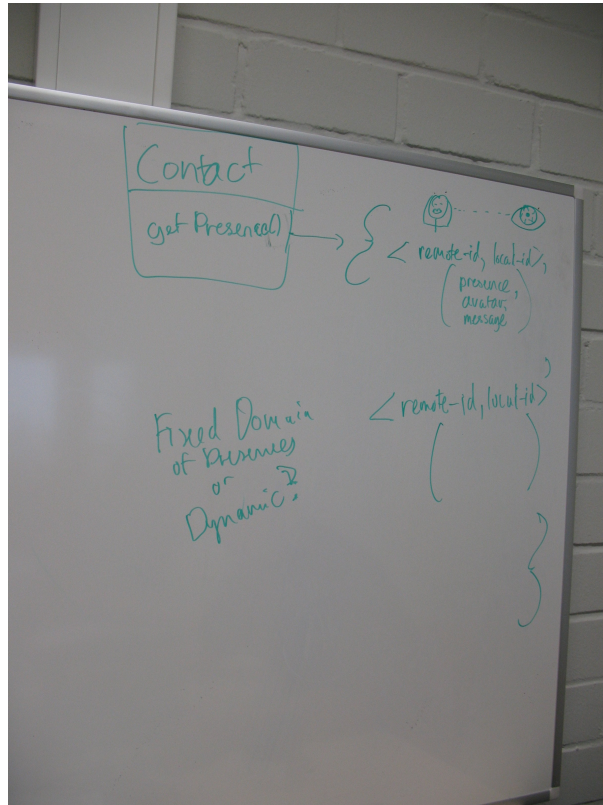 Contact
getPresence()
{
< remote-id, local-id>,
( presence,
avatar,
message )
,
< remote-id, local-id>
( )
}
Fixed Domain
of Presences
or
Dynamic?